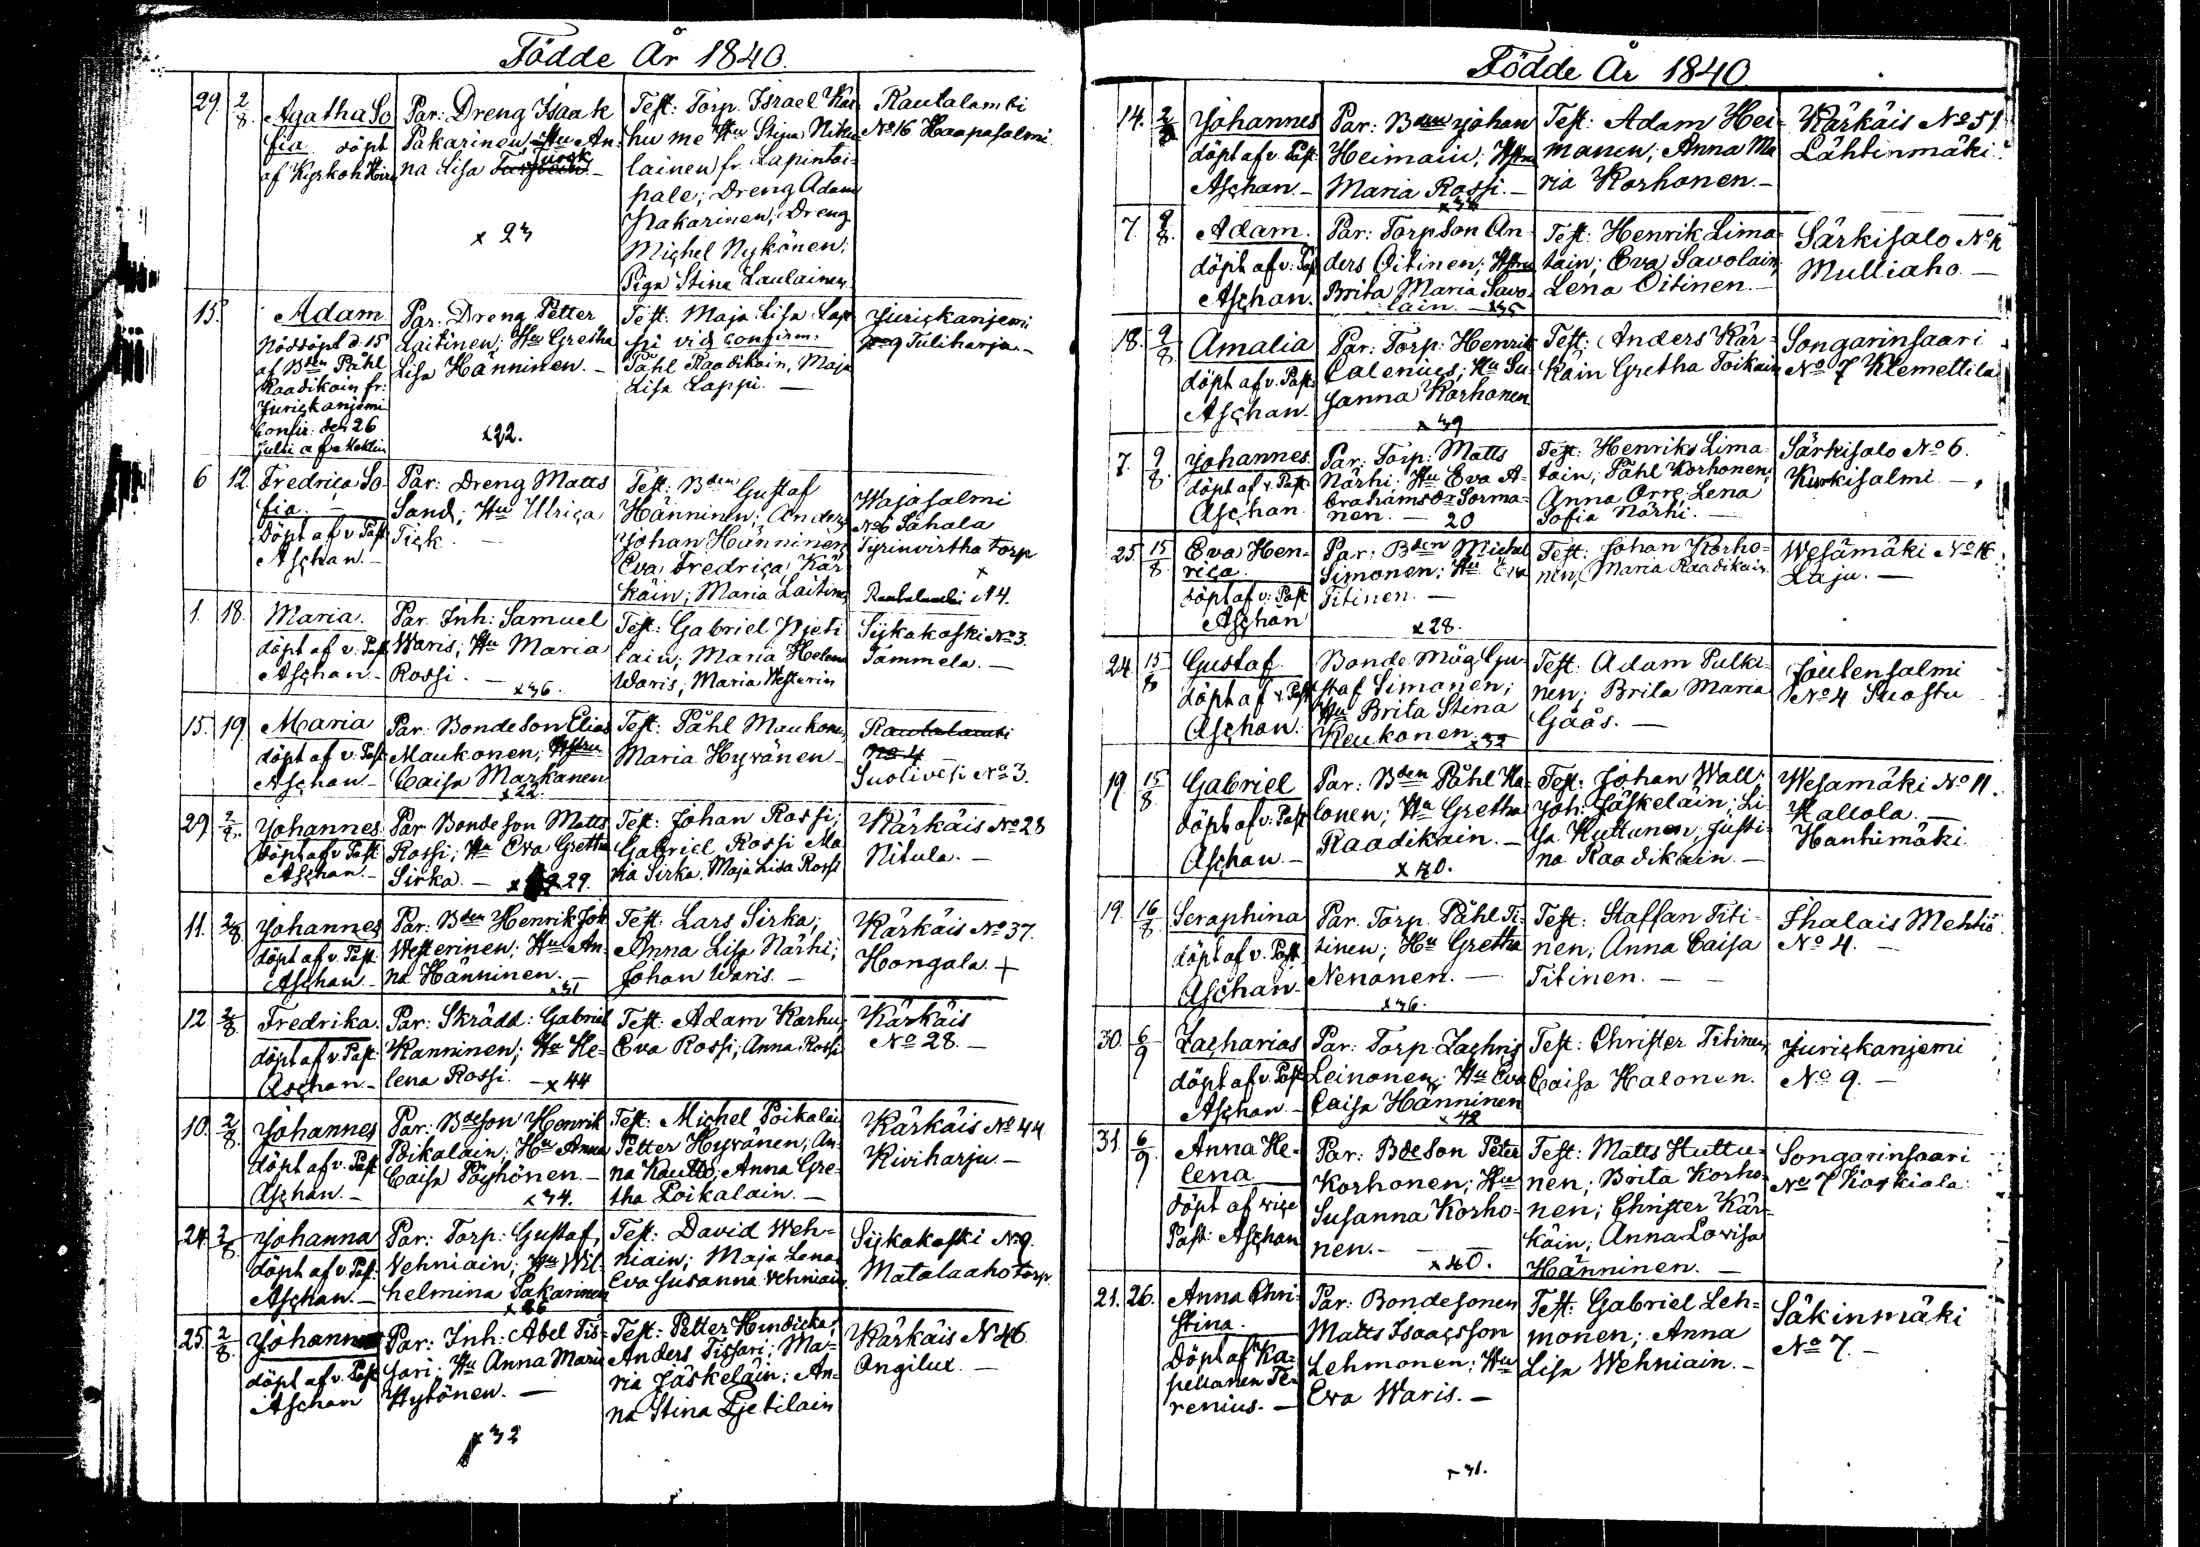 Födde År 1840.
29. 2/8. Agatha So
fia döpt
af Kyrkoh Hire
Par: Dreng Isaak
Pakarinen, Hu An-
na Lisa Tursk
x 23
Test: Torp. Israel Kar
hu me Hu Stina Niku
lainen fr. Lapintai-
pale; Dreng Adam
Pakarinen; Dreng
Michel Nykönen;
Piga Stina Laulainen.
Rautalambi
No 16 Haapasalmi.
15. Adam
Nöddöpt d. 15
af Bden Påhl
Raadikain fr.
Jurickaniemi
Confir. den 26
Julii af
Par: Dreng Petter
Laitinen; Hu Gretha
Lisa Hänninen. –
x 22.
Test: Maja Lisa Lap
pi vid confirm:
Påhl Raadikain, Maja
Lisa Lappi. –
Jurickaniemi
No 9 Tuliharju. –
6 12. Fredrica So
fia. –
Döpt af v Past
Aschan. –
Par: Dreng Matts
Sand; Hu Ulrica
Tick –
Test: Bden Gustaf
Hänninen; Anders
Johan Hänninen
Eva Fredrica Kär
käin; Maria Laitinen
Wajasalmi
No 6 Sahala
Tyrinvirtha torp
x
Rautalambi N 4.
1. 18. Maria.
döpt af v. Past
Aschan –
Par. Inh: Samuel
Waris; Hu Maria
Rossi. –
x 36.
Test: Gabriel Pjeti
lain; Maria Helena
Waris; Maria Westerin
Sykakoski No 3.
Tammela. –
15. 19. Maria
döpt af v. Past
Aschan –
Par. Bondeson Elias
Maukonen; Hstru
Caisa Markanen
x 22.
Test: Påhl Maukonen,
Maria Hyvönen –
Rautalambi
No 4
Suolivesi No 3.
29. 2/8. Johannes
Döpt af v Past
Aschan. –
Par Bondeson Matts
Rossi; Hu Eva Gretha
Sirka. – x 29.
Test: Johan Rossi;
Gabriel Rossi Ma
ria Sirka, Maja Lisa Rossi
Kärkäis No 28
Nitula. –
11. 2/8 Johannes
döpt af v. Past.
Aschan –
Par: Bden Henrik Joh
Westerinen; Hu An-
na Hänninen. –
x 31
Test: Lars Sirka;
Anna Lisa Närhi;
Johan Waris. –
Kärkäis No 37.
Hongala. +
12. 2/8 Fredrika.
döpt af v. Past.
Aschan –
Par: Skrädd: Gabriel
Kanninen; Hu He-
lena Rossi. – x 44
Test: Adam Karhu;
Eva Rossi; Anna Rossi
Kärkäis
No 28. –
10. 2/8. Johannes
döpt af v. Past
Aschan. –
Par: Bdeson Henrik
Poikalain; Hu Anna
Caisa Pöyhönen –
x 34.
Test: Michel Poikalai
Petter Hyvönen; An-
na Kautto; Anna Gre-
tha Poikalain. –
Kärkäis No 44
Kiviharju –
24. 2/8. Johanna
döpt af v. Past.
Aschan. –
Par: Torp: Gustaf
Vehniain; Hu Wil-
helmina Pakarinen
x 26
Test: David Weh-
niain; Maja Lena
Eva Susanna Vehniain.
Sykakoski No 9.
Matalaaho torp.
25. 2/8. Johannes
döpt af v. Past
Aschan
Par: Inh: Abel Tis-
sari. Hu Anna Maria
Hytönen. –
x 32
Test: Petter Hindicka,
Anders Tissari; Ma-
ria Jäskeläin; An-
na Stina Pjetilain
Kärkäis N 46
Angilux. –
Födde År 1840.
14. 2/8 Johannes
döpt af v. Past.
Aschan. –
Par: Bden Johan
Heimain; Hstru
Maria Rossi. –
x 38
Test: Adam Hei-
manen; Anna Ma
ria Korhonen –
Kärkäis No 51.
Lähtinmäki.
7. 9/8. Adam.
döpt af v. Past
Aschan.
Par: Torpson An-
ders Oitinen; Hstru
Brita Maria Savo-
lain. – x 35
Test: Henrik Lima-
tain; Eva Savolain;
Lena Oitinen. –
Särkisalo No 4
Mulliaho. –
18. 9/8 Amalia
döpt af v. Past
Aschan.
Par: Torp: Henrik
Calenius; Hu Su-
sanna Korhonen
x 39
Test: Anders Kär-
käin Gretha Toikain
Songarinsaari
No 7 Klemettila
7. 9/8. Johannes
döpt af v. Past.
Aschan
Par: Torp: Matts
Närhi. Hu Eva A-
brahamsdr Sorma-
nen. – 20
Test: Henriks Lima-
tain; Påhl Korhonen;
Anna Orre, Lena
Sofia Närhi. –
Särkisalo No 6.
Kivisalmi. –
25. 15/8. Eva Hen-
rica.
döpt af v. Past
Aschan
Par: Bden Michel
Simonen; Hu Eva
Titinen. –
x 28.
Test: Johan Korho-
nen; Maria Raadikain.
Wesämäki No 16.
Laju. –
24. 15/8 Gustaf.
döpt af v Past
Aschan.
Bonde Måg Gu-
staf Simonen;
Hu Brita Stina
Keukonen. x 32
Test: Adam Pulki-
nen; Brita Maria
Gåås. –
Joutensalmi
No 4 Suostu
19. 15/8 Gabriel
döpt af v. Past
Aschan. –
Par: Bden Påhl Ha-
lonen; Hu Gretha
Raadikain. –
x 40.
Test: Johan Wall;
Joh: Jäskeläin; Li-
sa Kuttunen; Justi-
na Raadikain –
Wesamäki No 11.
Kallola. –
Hanhimäki.
19. 16/8 Seraphina
döpt af v. Past.
Aschan –
Par. Torp. Påhl Ti-
tinen; Hu Gretha
Nenonen. –
x 36.
Test: Staffan Titi-
nen, Anna Caisa
Titinen. –
Ihalais Mehtiö
No 4. –
30. 6/9 Zacharias
döpt af v. Past
Aschan –
Par: Torp. Zachris
Leinonen; Hu Eva
Caisa Hänninen
x 42
Test: Christer Titinen,
Caisa Halonen.
Jurickaniemi
No 9. –
31. 6/9. Anna He-
lena
Döpt af vice
Past: Aschan
Par: Bdeson Peter
Korhonen; Hu
Susanna Korho-
nen. –
x 40.
Test: Matts Huttu-
nen; Brita Korho-
nen; Christer Kär-
käin; Anna Lovisa
Hänninen. –
Songarinsaari
No 7 Koskiala.
21. 26. Anna Chri-
stina.
Döpt af Ka-
pellanen Te-
renius. –
Par: Bondesonen
Matts Isaacsson
Lehmonen; Hu
Eva Waris. –
x 31.
Test: Gabriel Leh-
monen; Anna
Lisa Wehniain. –
Säkinmäki
No 7. –